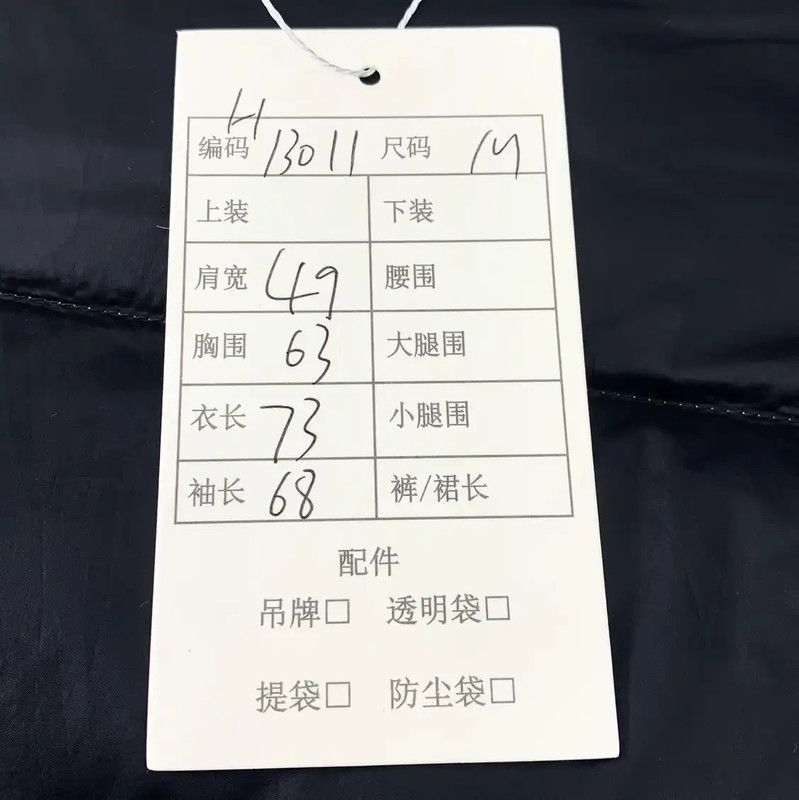 编码 H13011 尺码 M
上装 下装
肩宽 49 腰围
胸围 63 大腿围
衣长 73 小腿围
袖长 68 裤/裙长
配件
吊牌□ 透明袋□
提袋□ 防尘袋□